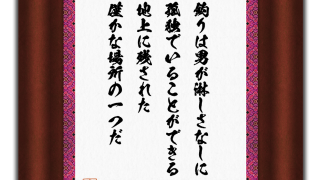 釣りは男が淋しさなしに
孤独でいることができる
地上に残された
僅かな場所の一つだ